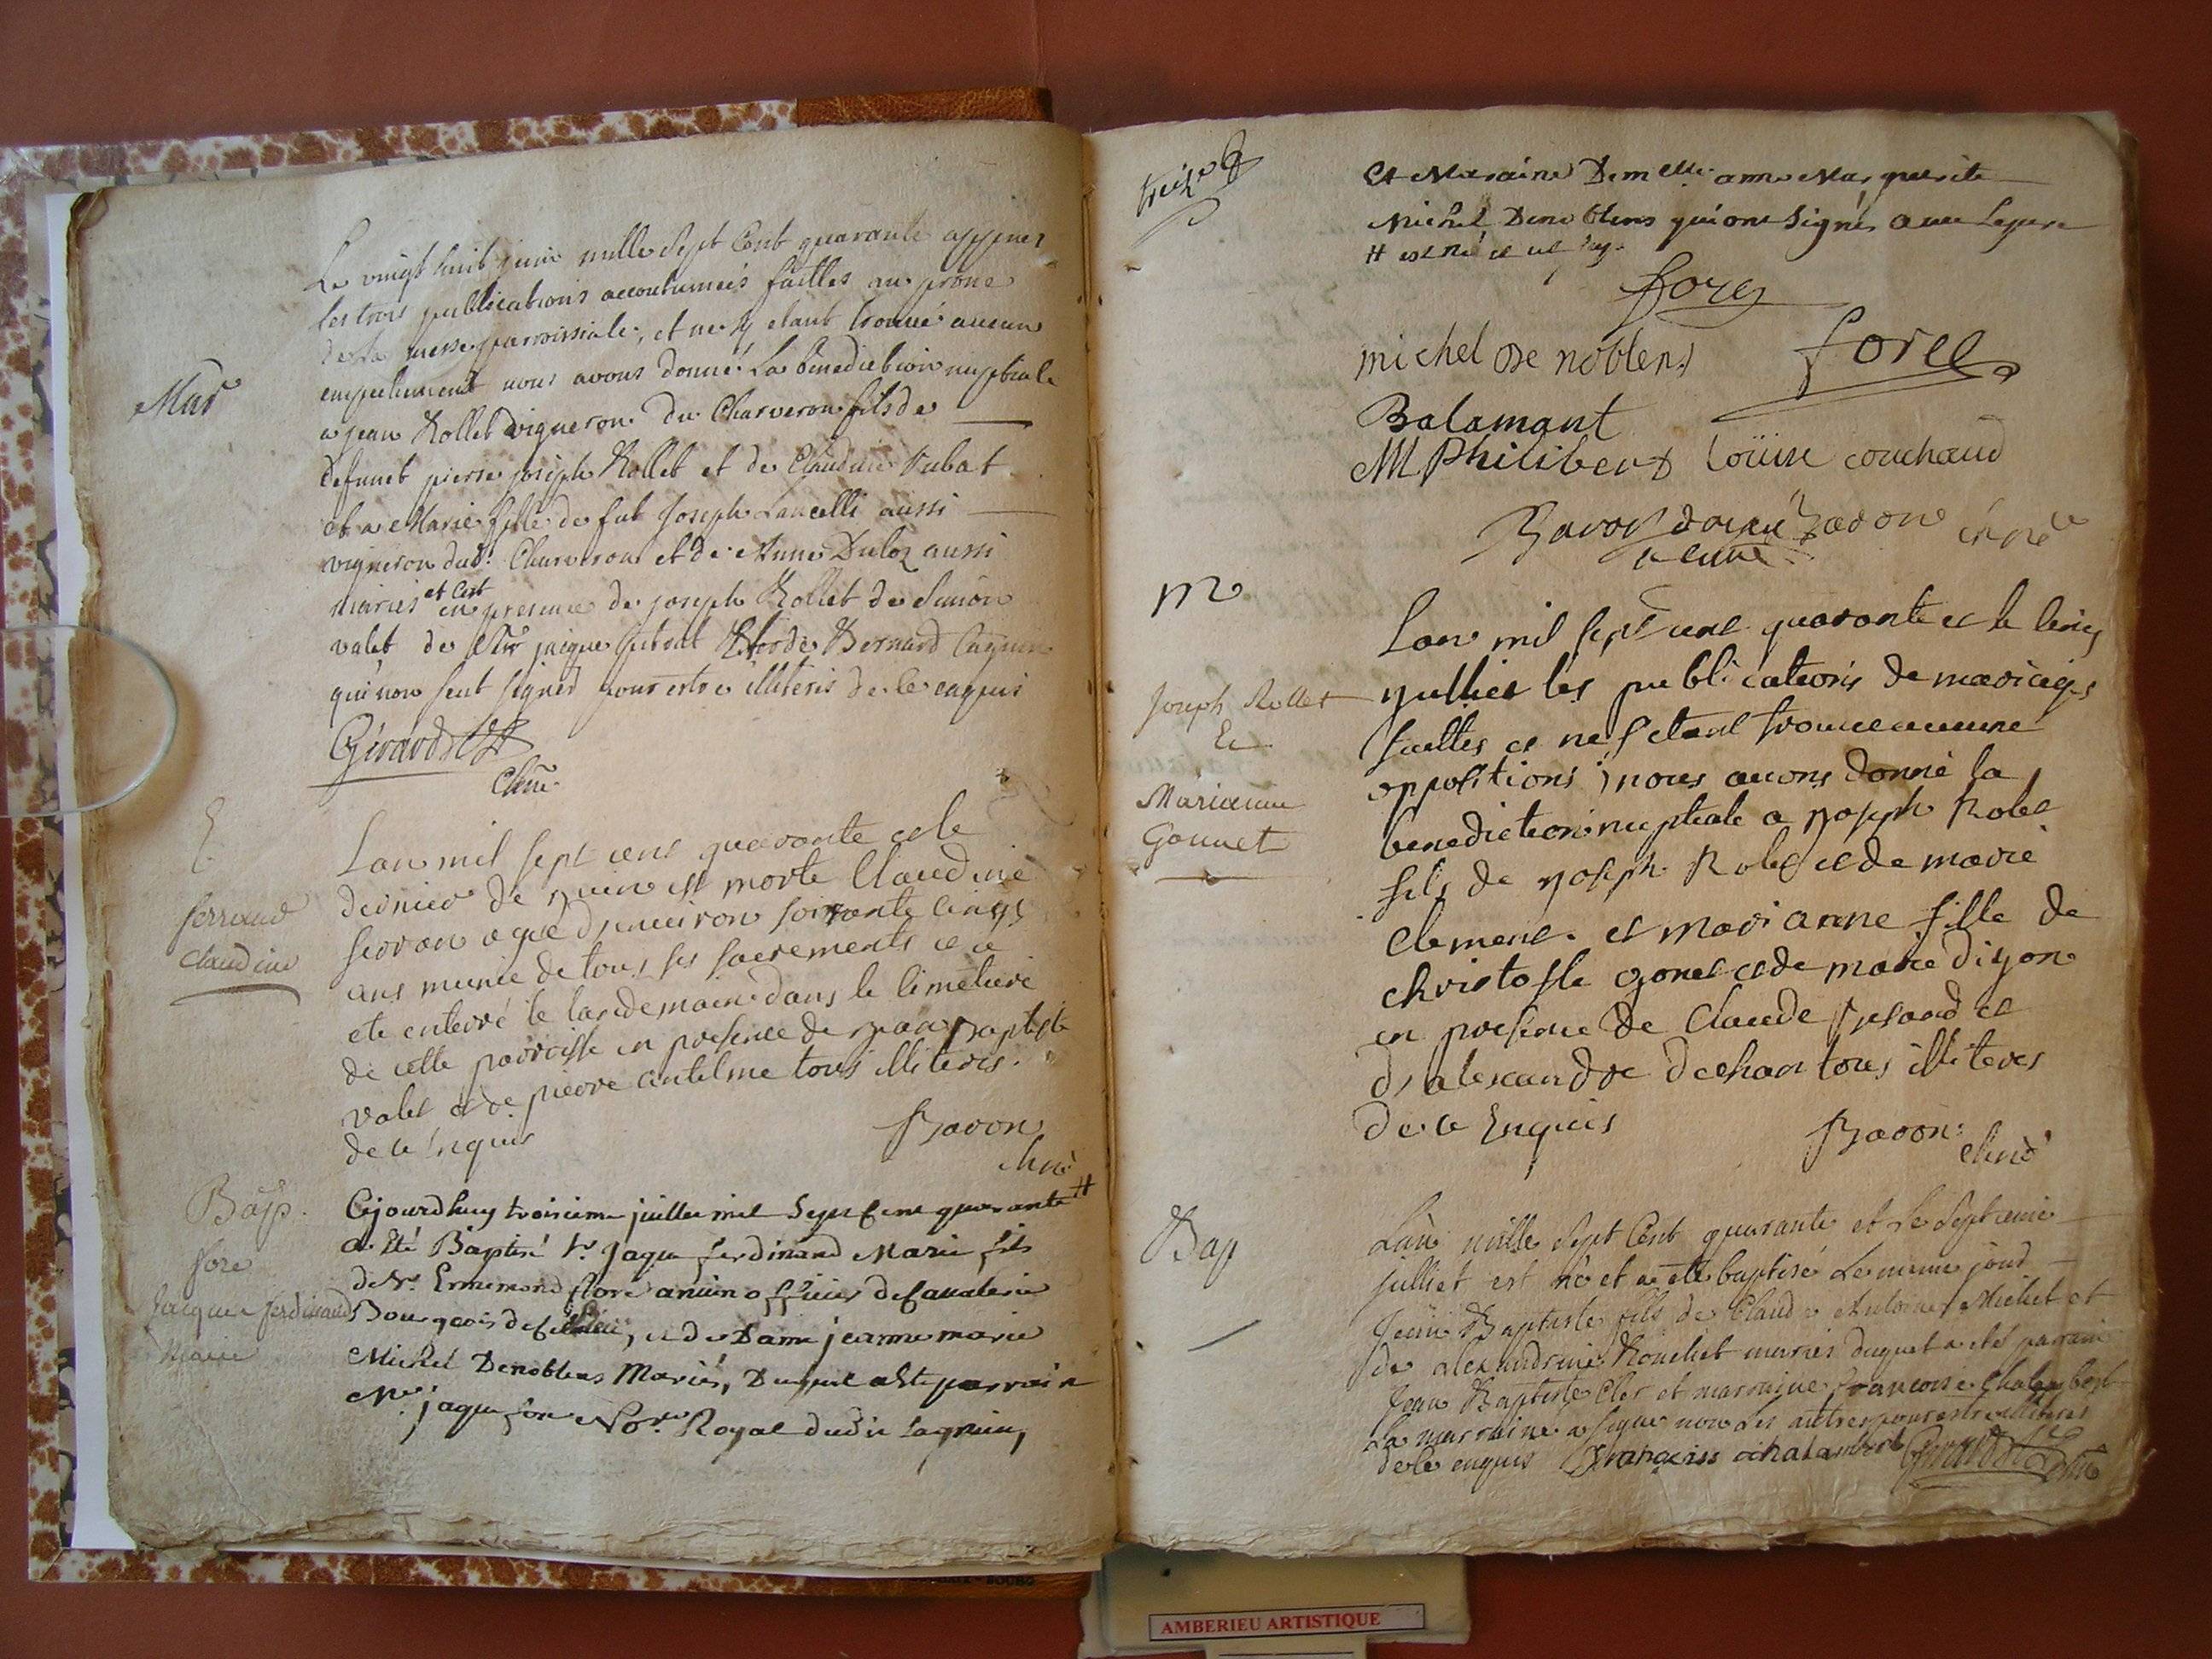 Mar
Le vingt huit juin mille sept Cent quarante appres
les trois publications accoutumées faittes au prone
de la messe parroissiale, et ne sy etant trouvé aucun
empechement nous avons donné La benediction nuptiale
a jean Rollet vigneron du Charveron fils de
defunct pierre joseph Rollet et de Claudine Pubat
et a Marie fille de fut Joseph Lancelli aussi
vigneron dud. Charveron et de Anne Duloz aussi
mariés et Cest en presence de joseph Rollet de Simon
valet de jacque et de Bernard Cagnin
qui non seut signer pour estre illiterés de ce enquis
Girard
E
ferrand
Claudine
Lan mil sept cent quarante et le
dernier de juin est morte Claudine
feoran agée d'environ soixante cinq
ans munie de tous ses sacrements et a
ete enterré le landemain dans le cimetiere
de cette parroisse en presence de jean Baptiste
valet et de pierre antelme tous illiteres
de ce Inquis
Bavon
Bap.
fore
Jacque ferdinand
Marie
Cejourdhuy troisieme juillet mil Sept Cent quarante #
a Eté Baptisé Sr Jaque ferdinand Marie fils
de Sr. Ennemond fore ancien officier de Cavalerie
Bourgeois de, et de Dame jeanne marie
Michel Denoblens Mariés, Duquel a Eté parrain
Me. jaque fore Nore. Royal dudit Lagnieu,
treize
Et Maraine Demelle. anne Marguerite
Michel Denoblens qui ont Signés avec Lepere
# est né ce
fore
michel De noblens foree
Balamant
M Philibert Loüise couchaud
Bavon
M
Joseph Rollet
Et
Marianne
Gonnet
Lan mil sept cent quarante et le cinq
juilliet les publications de mariages
faittes et ne setant trouvee aucune
oppositions, nous avons donné la
benediction nuptiale a joseph Rolet
fils de joseph Rolet et de marie
Clement. et marianne fille de
christofle gonet et de marie Diyon
en presence de Claude et
d'alexandre Dechan tous illiteres
de ce Enquis
Bavon
Bap
Lan mille Sept Cent quarante et Le Septieme
julliet est né et a eté baptisé Le meme jour
Jean Baptiste fils de Claude Antoine Michet et
de alexandrine Rouchet mariés duquel a eté parrain
Jean Baptiste Cler et marraine francoise Chalambert
La marraine a signé non Les autres pour estre illiteres
de ce enquis francoise chalambert Girard
AMBERIEU ARTISTIQUE